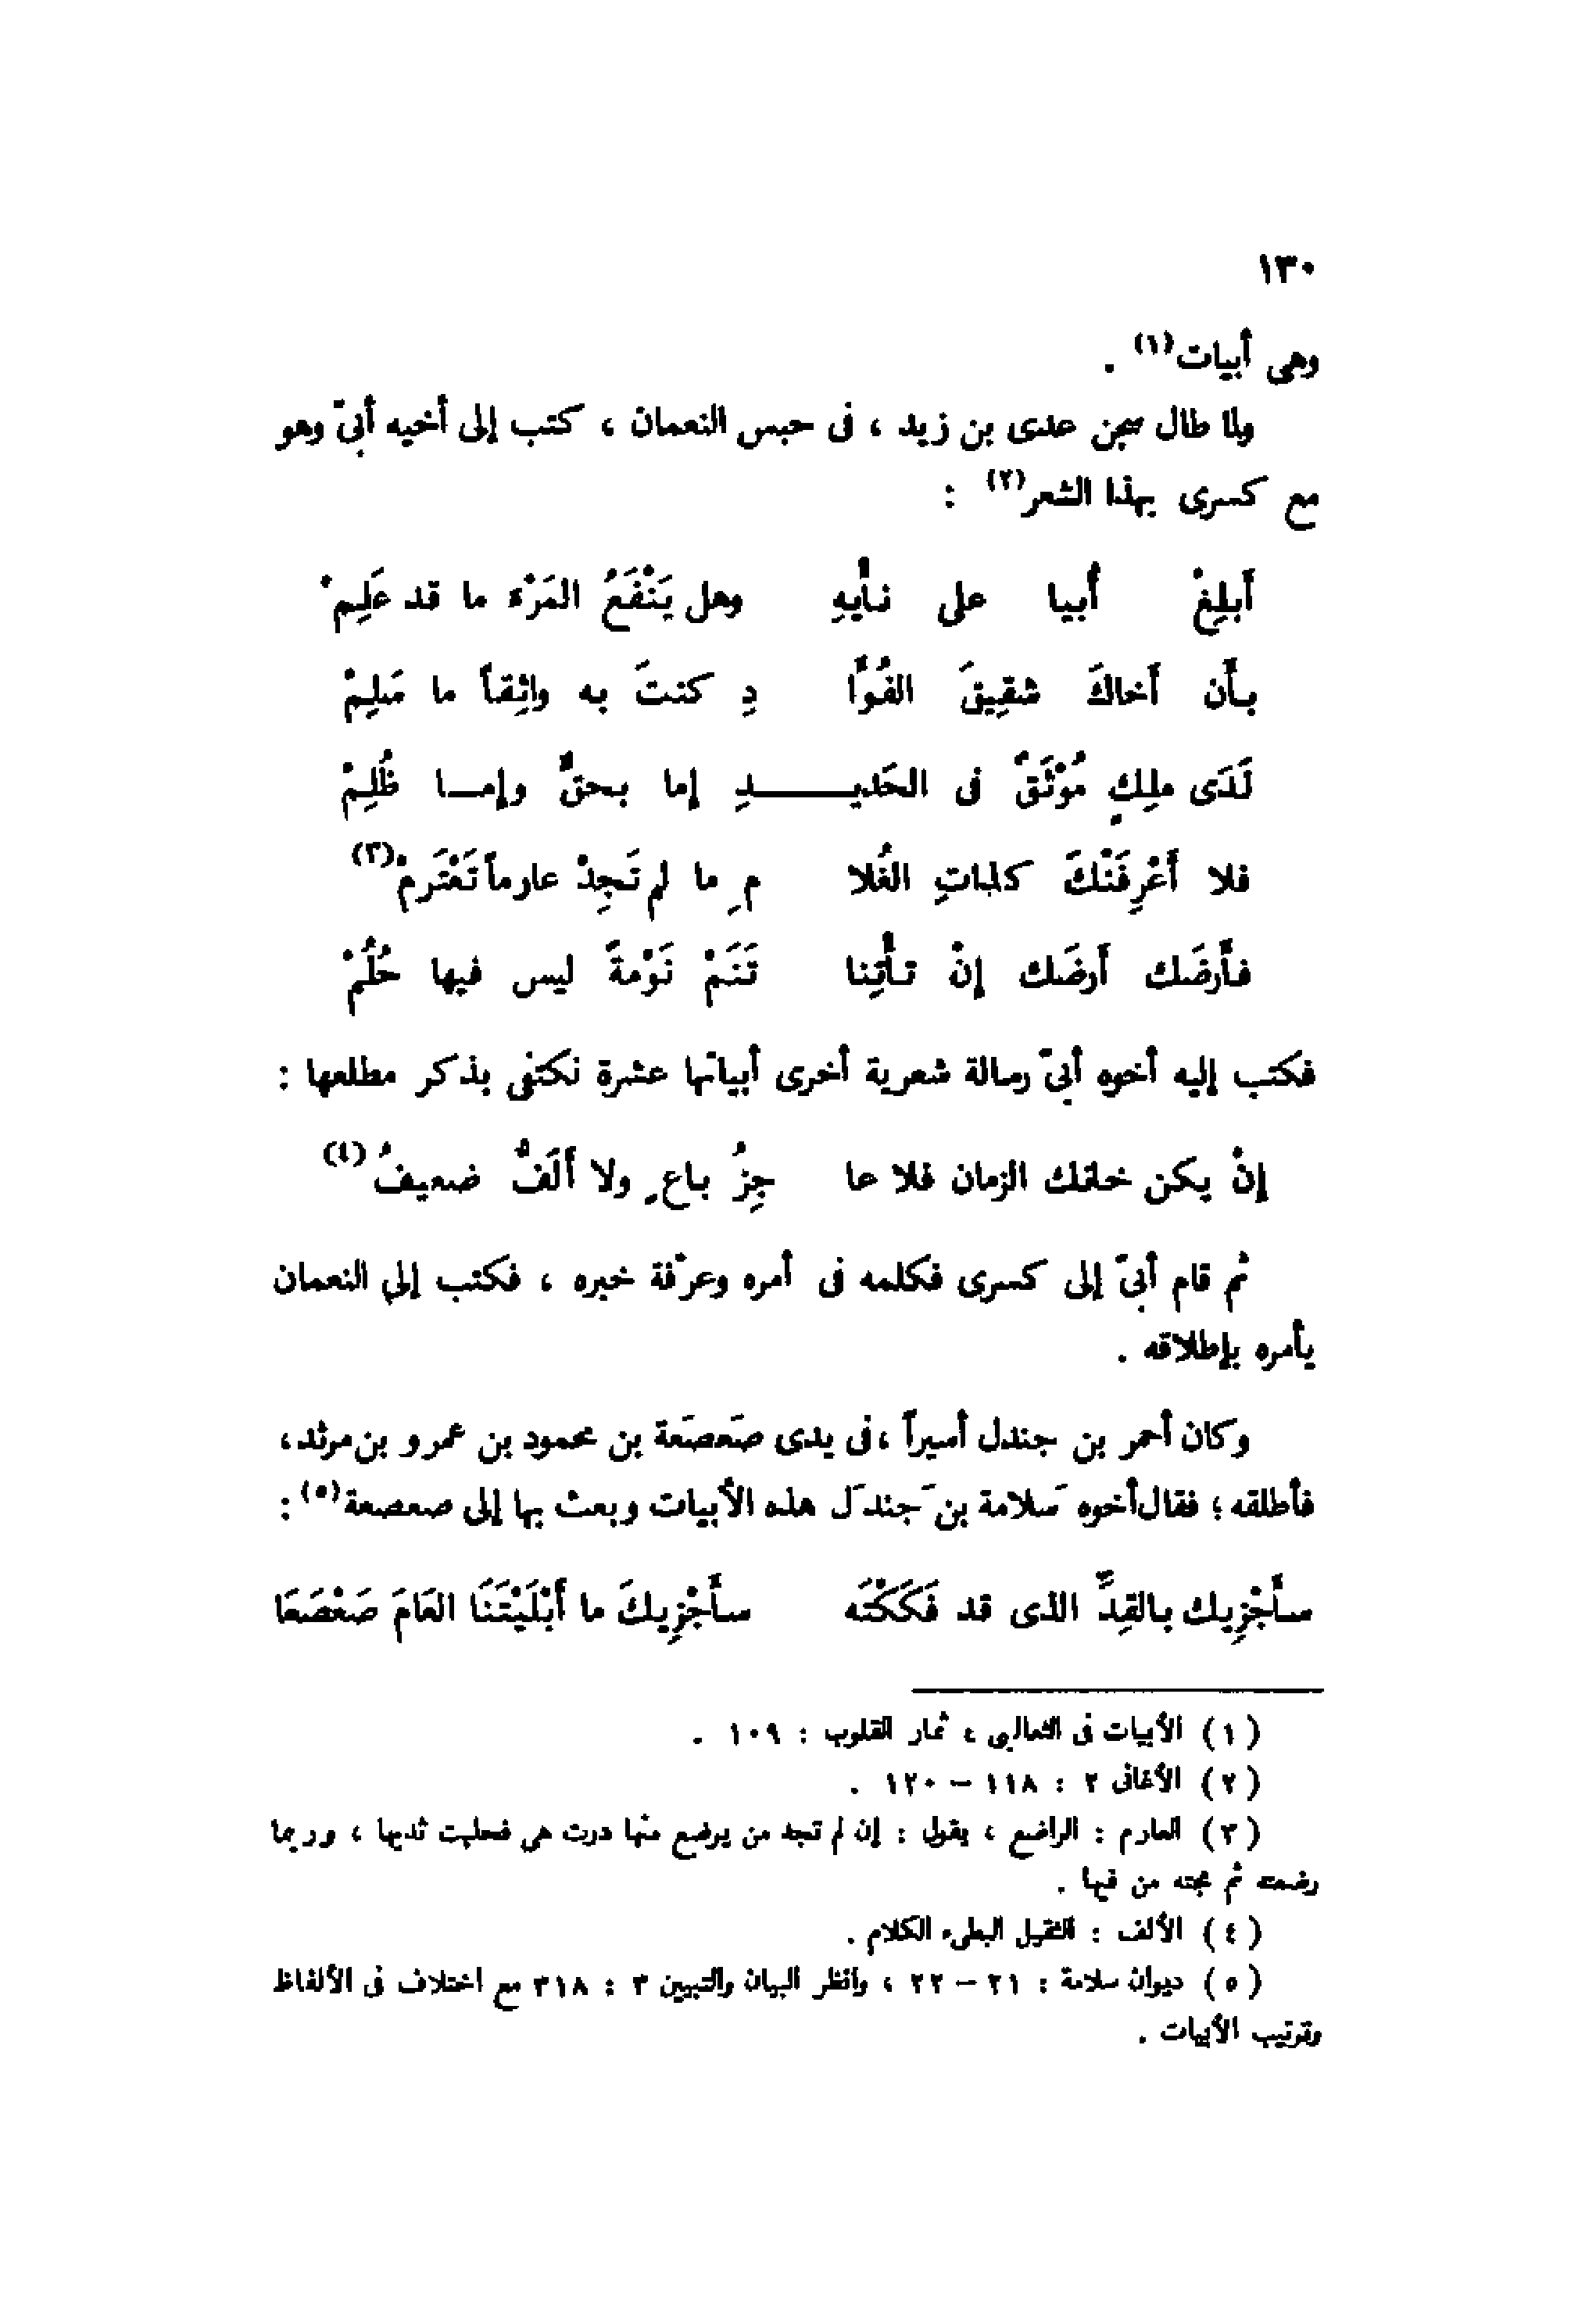 ١٣٠
وهى أبيات(١) .
ولما طال سجن عدى بن زيد ، فى حبس النعمان ، كتب إلى أخيه أبىّ وهو
مع كسرى بهذا الشعر(٢) :
أَبلِغْ أُبيا على نأْيِهِ وهل يَنْفَعُ المَرْءَ ما قد عَلِمْ
بأَن أَخاكَ شقِيقَ الفُوَّا دِ كنتَ به واثِقاً ما سَلِمْ
لَدَى ملِكٍ مُوْثَقٌ فى الحَديـــــدِ إما بحقٍّ وإمــا ظُلِمْ
فلا أَعْرِفَنْكَ كذاتِ الغُلا مِ ما لم تَجِدْ عارماً تَعْتَرِمْ(٣)
فأَرضَك أَرضَك إنْ تأْتِنا تَنَمْ نَوْمةً ليس فيها حُلُمْ
فكتب إليه أخوه أبىّ رسالة شعرية أخرى أبياتها عشرة نكتفى بذكر مطلعها :
إنْ يكن خانك الزمان فلا عا جِزُ باعٍ ولا أَلَفُّ ضعيفُ(٤)
ثم قام أبىّ إلى كسرى فكلمه فى أمره وعرّفة خبره ، فكتب إلى النعمان
يأمره بإطلاقه .
وكان أحمر بن جندل أسيراً ،فى يدى صَعصَعة بن محمود بن عمرو بن مرثد،
فأطلقه ؛ فقال أخوه سَلامة بن جَندَل هذه الأبيات وبعث بها إلى صعصعة(٥) :
سأَجْزِيك بالقِدِّ الذى قد فَكَكْتَه سأَجْزِيكَ ما أَبْلَيْتَنَا العَامَ صَعْصَعَا
(١) الأبيات فى الثعالبى ، ثمار القلوب : ١٠٩ .
(٢) الأغانى ٢ : ١١٨ – ١٢٠ .
(٣) العارم : الراضع ، يقول : إن لم تجد من يرضع منها درت هى فحلبت ثديها ، وربما
رضعته ثم مجته من فيها .
(٤) الألف : الثقيل البطىء الكلام .
(٥) ديوان سلامة : ٢١ – ٢٢ ، وانظر البيان والتبيين ٣ : ٣١٨ مع اختلاف فى الألفاظ
وترتيب الأبيات .